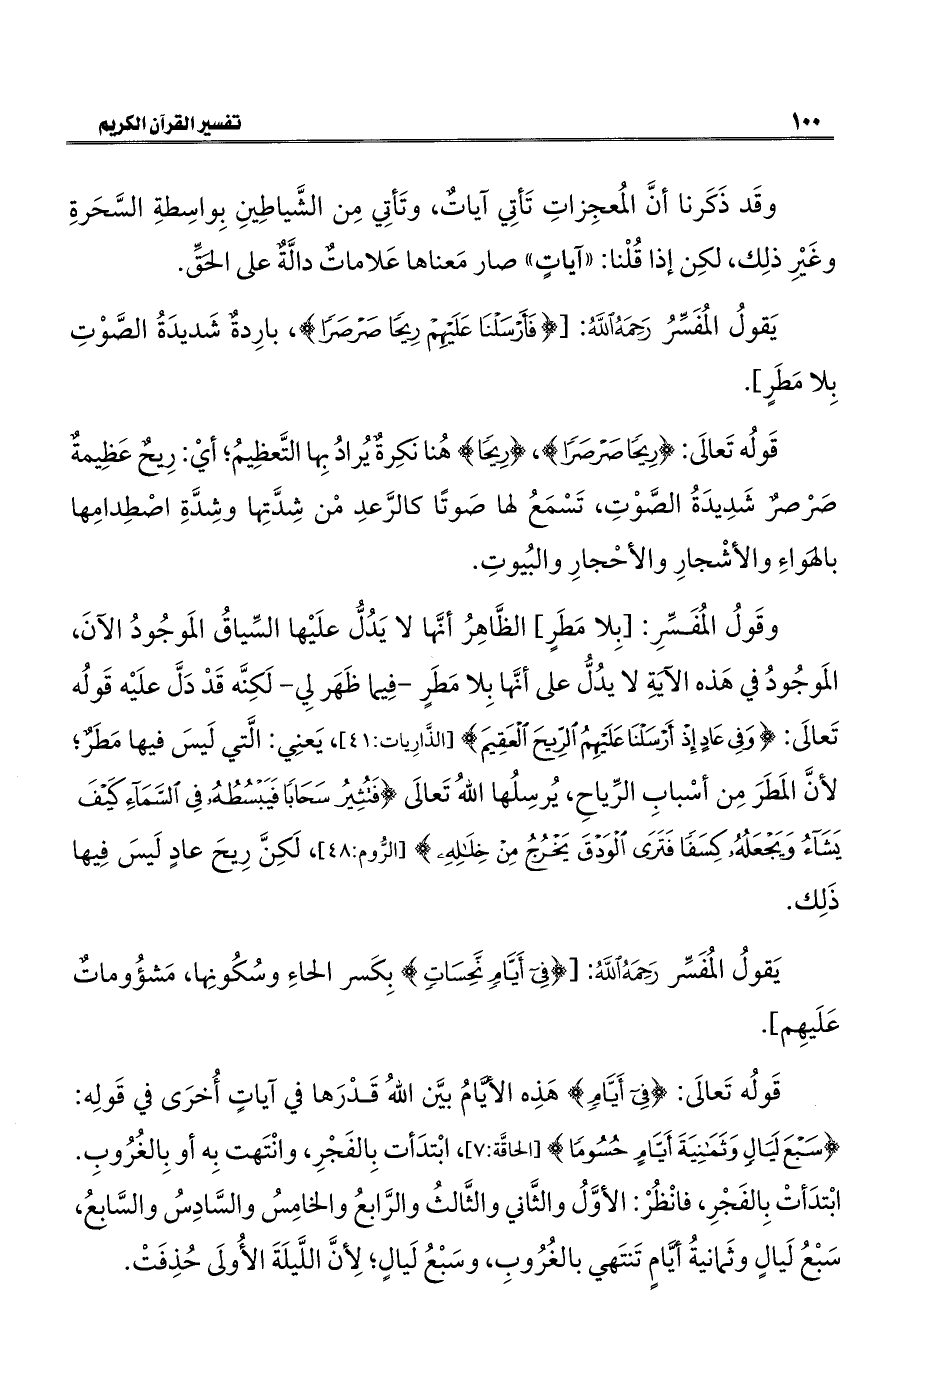 ١٠٠ تفسير القرآن الكريم
وقَد ذَكَرنا أنَّ المُعجِزاتِ تَأتي آياتٌ، وتَأتي مِن الشَّياطِينِ بِواسِطةِ السَّحَرةِ
وغَيْرِ ذلِك، لكِن إذا قُلْنا: «آياتٍ» صار مَعناها عَلاماتٌ دالَّةٌ على الحَقِّ.
يَقولُ المُفَسِّرُ رَحِمَهُ اللَّهُ: [﴿فَأَرْسَلْنَا عَلَيْهِمْ رِيحًا صَرْصَرًا﴾، بارِدةٌ شَديدَةُ الصَّوْتِ
بِلا مَطَرٍ].
قَولُه تَعالَى: ﴿رِيحًا صَرْصَرًا﴾، ﴿رِيحًا﴾ هُنا نَكِرةٌ يُرادُ بِها التَّعظِيمُ؛ أيْ: رِيحٌ عَظِيمةٌ
صَرْصرٌ شَدِيدَةُ الصَّوْتِ، تَسْمَعُ لها صَوتًا كالرَّعدِ مْن شِدَّتِها وشِدَّةِ اصْطِدامِها
بالهَواءِ والأشْجارِ والأحْجارِ والبُيوتِ.
وقَولُ المُفَسِّرِ: [بِلا مَطَرٍ] الظَّاهِرُ أنَّها لا يَدُلُّ علَيْها السِّياقُ المَوجُودُ الآنَ،
المَوجُودُ في هَذه الآيَةِ لا يدُلُّ على أنَّها بِلا مَطَرٍ -فِيما ظَهَر لِي- لَكِنَّه قَدْ دَلَّ علَيْه قَولُه
تَعالَى: ﴿وَفِي عَادٍ إِذْ أَرْسَلْنَا عَلَيْهِمُ ٱلرِّيحَ ٱلْعَقِيمَ﴾ [الذَّارِيات:٤١]، يَعنِي: الَّتي لَيسَ فيها مَطَرٌ؛
لأنَّ المَطَرَ مِن أسْبابِ الرِّياحِ، يُرسِلُها اللهُ تَعالَى ﴿فَتُثِيرُ سَحَابًا فَيَبْسُطُهُۥ فِي ٱلسَّمَآءِ كَيْفَ
يَشَآءُ وَيَجْعَلُهُۥ كِسَفًا فَتَرَى ٱلْوَدْقَ يَخْرُجُ مِنْ خِلَٰلِهِۦ﴾ [الرُّوم:٤٨]، لَكِنَّ رِيحَ عادٍ لَيسَ فِيها
ذَلِك.
يَقولُ المُفَسِّر رَحِمَهُ ٱللَّهُ: [﴿فِيٓ أَيَّامٍ نَّحِسَاتٍ﴾ بِكَسر الحاءِ وسُكُونِها، مَشؤُوماتٌ
عَلَيهِم].
قَولُه تَعالَى: ﴿فِيٓ أَيَّامٍ﴾ هَذِه الأيَّامُ بيَّن اللهُ قَدْرَها في آياتٍ أُخرَى في قَولِه:
﴿سَبْعَ لَيَالٍ وَثَمَٰنِيَةَ أَيَّامٍ حُسُومًا﴾ [الحاقَّة:٧]، ابْتدَأت بِالفَجْرِ، وانْتَهت بِه أو بِالغُرُوبِ.
ابْتدَأتْ بِالفَجْرِ، فانْظُرْ: الأوَّلُ والثَّاني والثَّالثُ والرَّابعُ والخامِسُ والسَّادِسُ والسَّابعُ،
سَبْعُ لَيالٍ وثَمانيةُ أيَّامٍ تَنتَهي بالغُرُوبِ، وسَبْعُ لَيالٍ؛ لِأنَّ اللَّيلَةَ الأُولَى حُذِفَتْ.